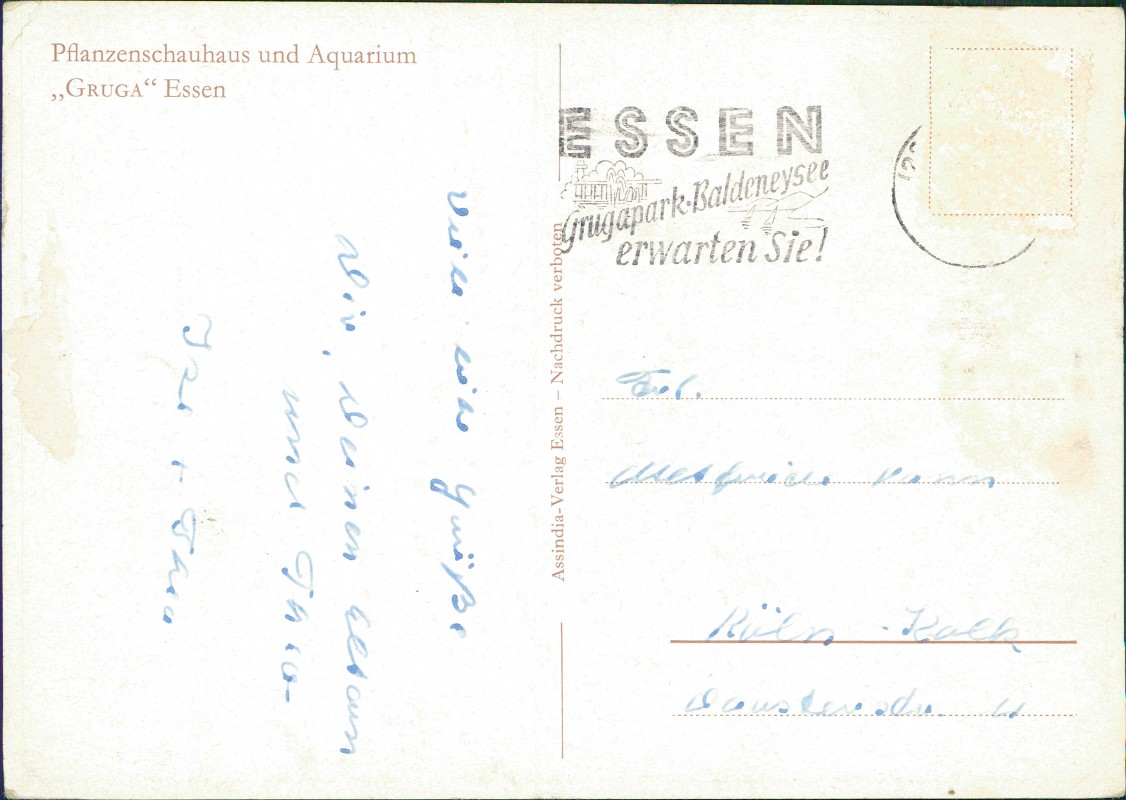 Pflanzenschauhaus und Aquarium
„GRUGA“ Essen
ESSEN
Grugapark-Baldeneysee
erwarten Sie!
Assindia-Verlag Essen – Nachdruck verboten
Grüße
Dir, Deinen Eltern
und Theo
Theo
Frl.
Köln-Kalk